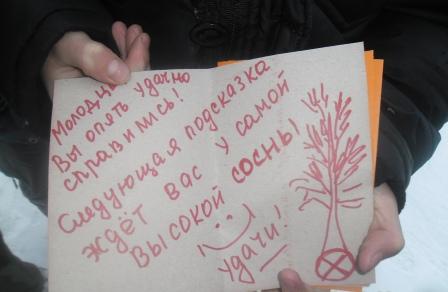 Молодцы
Вы опять удачно
справились!
Следующая подсказка
ждёт вас у самой
высокой сосны
удачи!